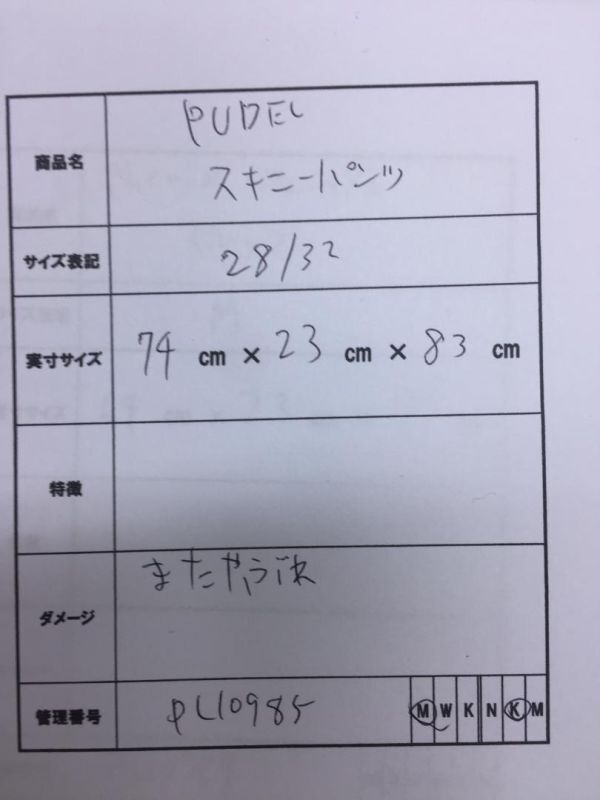 商品名 PUDEL
スキニーパンツ
サイズ表記 28/32
実寸サイズ 74 cm × 23 cm × 83 cm
特徴
ダメージ またやぶれ
管理番号 PL10985 M W K N K M